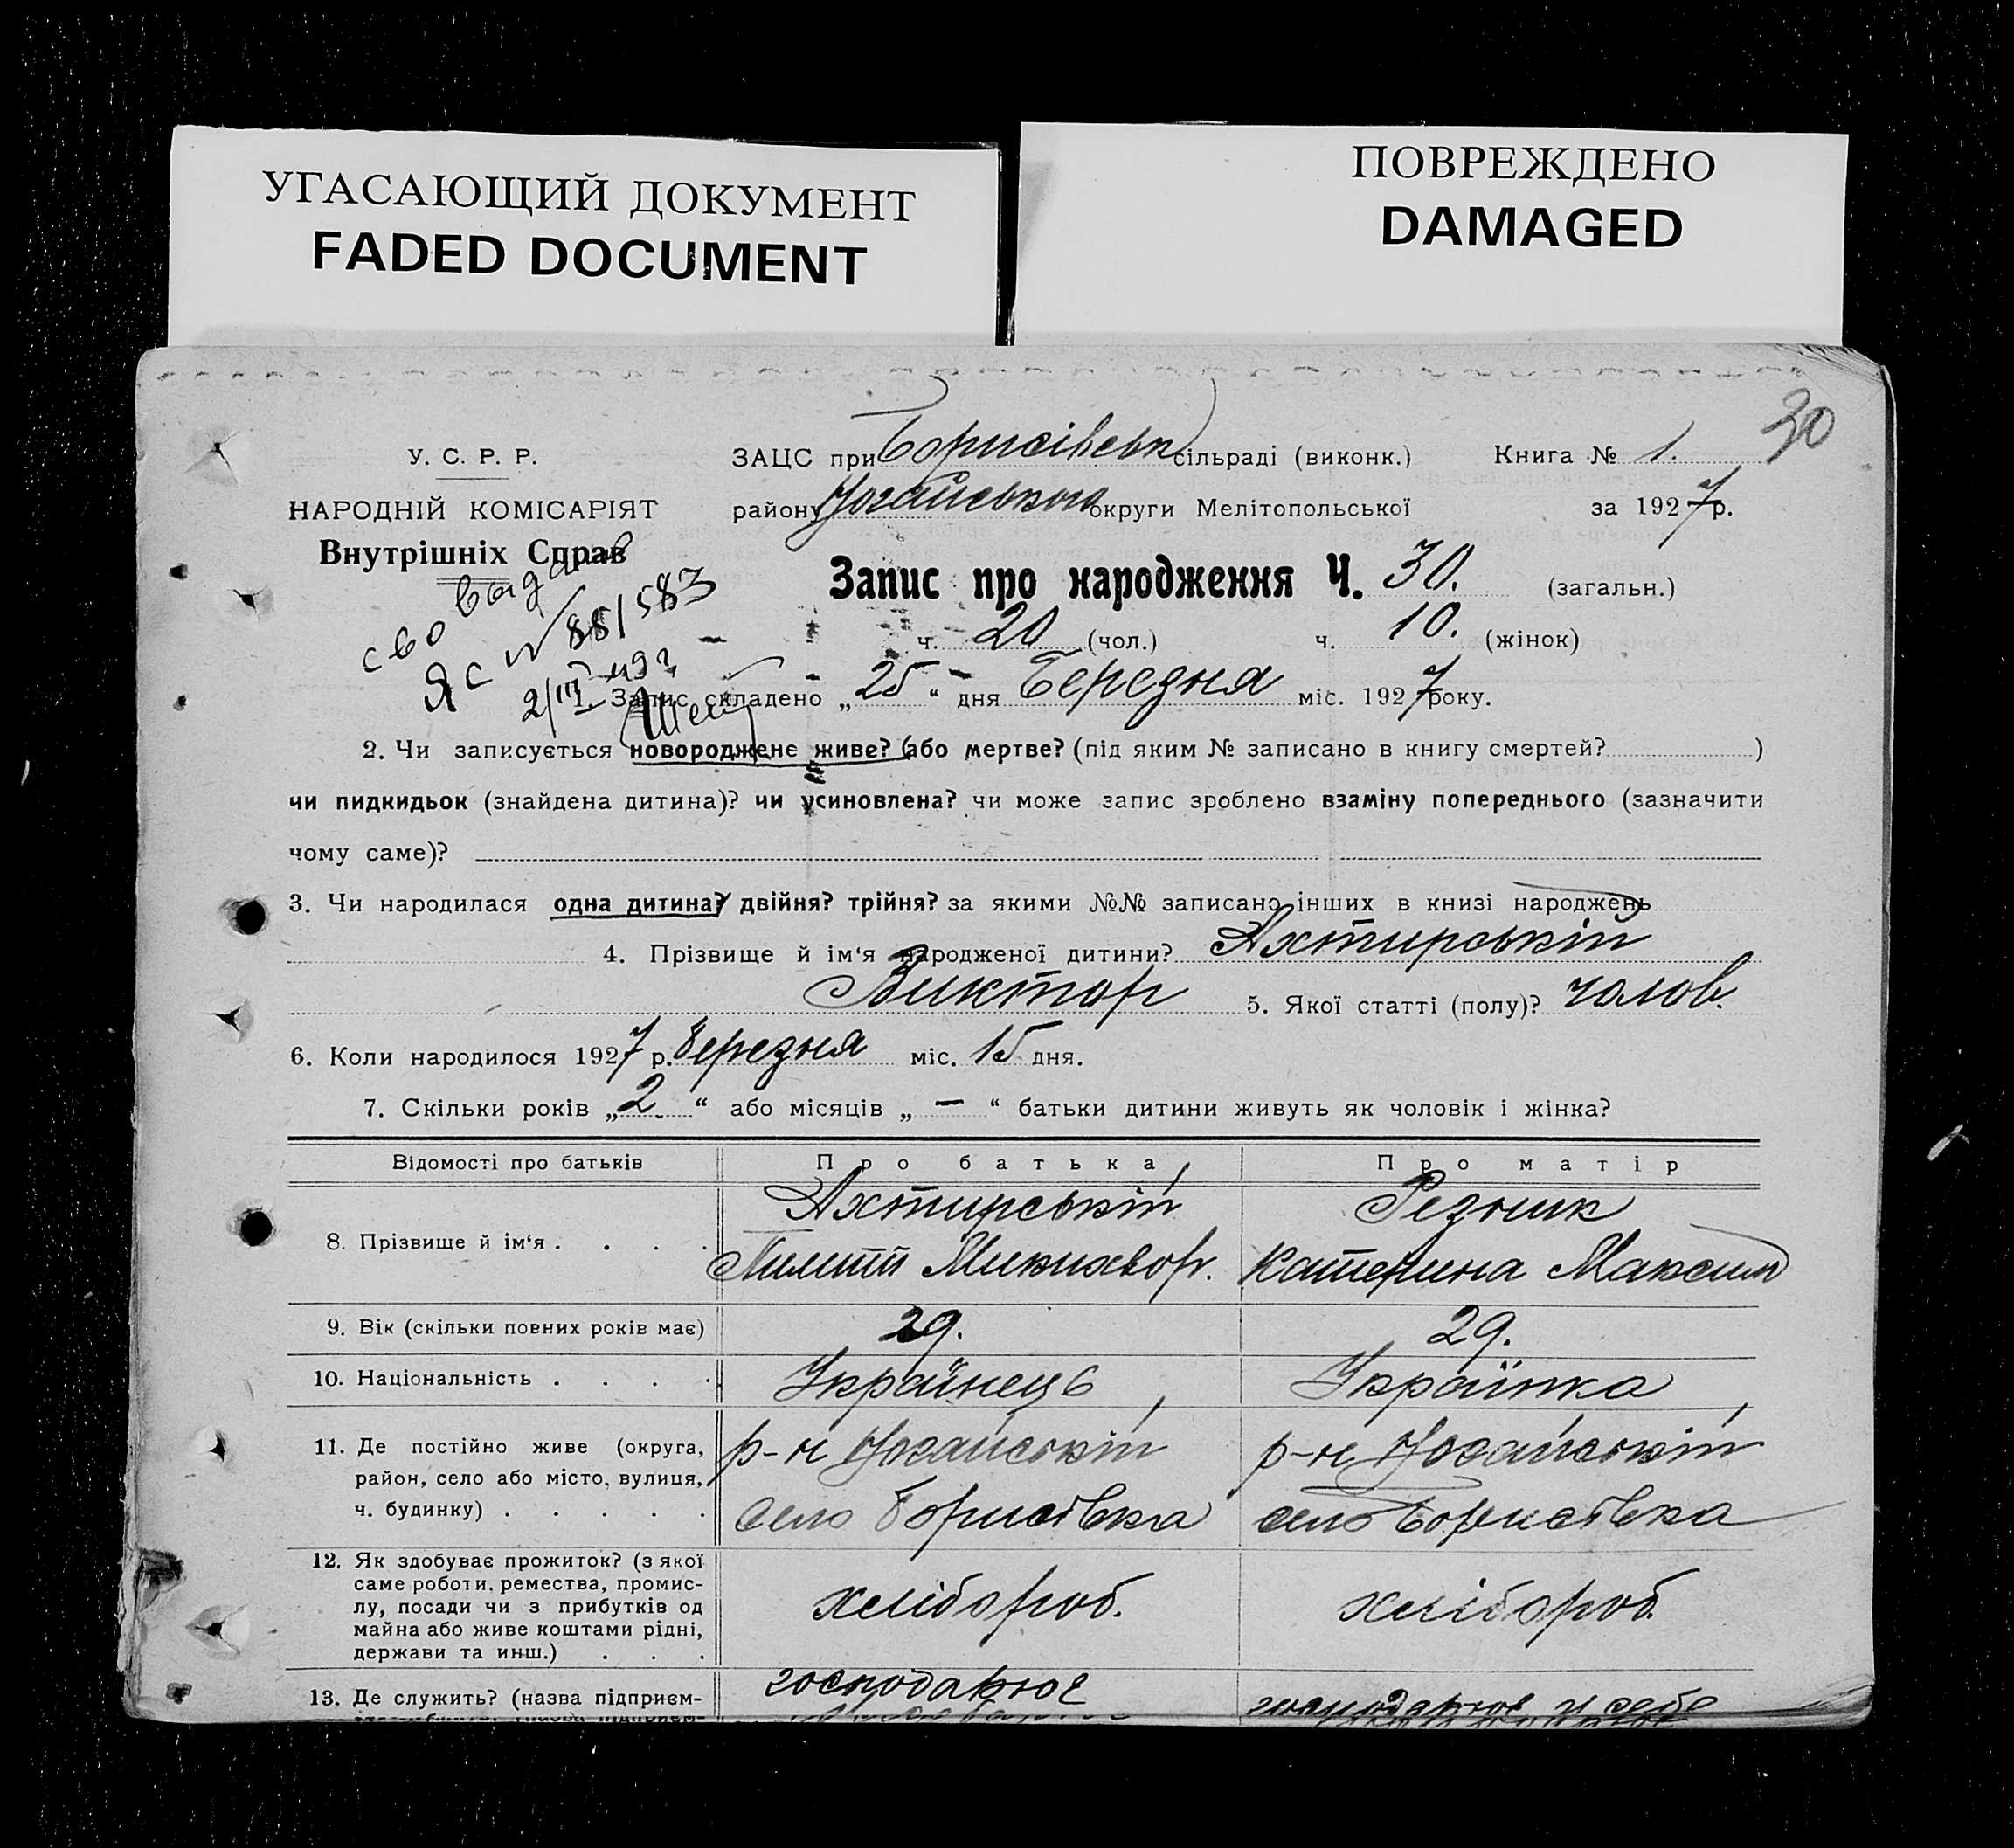 УГАСАЮЩИЙ ДОКУМЕНТ
FADED DOCUMENT
ПОВРЕЖДЕНО
DAMAGED
30
У. С. Р. Р.
НАРОДНІЙ КОМІСАРІЯТ
Внутрішніх Справ
ЗАЦС при Борисівськ сільраді (виконк.) Книга № 1.
району Ногайського округи Мелітопольської за 1927 р.
Запис про народження Ч. 30. (загальн.)
ч. 20 (чол.) ч. 10. (жінок)
сво выдано
ЯС № 88/583
1. Запис складено „25“ дня Березня міс. 1927 року.
2. Чи записується новороджене живе? або мертве? (під яким № записано в книгу смертей? )
чи пидкидьок (знайдена дитина)? чи усиновлена? чи може запис зроблено взаміну попереднього (зазначити
чому саме)?
3. Чи народилася одна дитина? двійня? трійня? за якими №№ записано інших в книзі народжень
4. Прізвище й ім‘я народженої дитини? Ахтирський
Виктор 5. Якої статті (полу)? чолов.
6. Коли народилося 1927 р. березня міс. 15 дня.
7. Скільки років „2“ або місяців „—“ батьки дитини живуть як чоловік і жінка?
Відомості про батьків Про батька Про матір
8. Прізвище й ім‘я . . . . Ахтирський Резник
Катерина Максим
9. Вік (скільки повних років має) 29. 29.
10. Національність . . . . Українець Українка
11. Де постійно живе (округа, р-н Ногайський р-н Ногайський
район, село або місто, вулиця,
ч. будинку) . . . . . село Борисівка село Борисівка
12. Як здобуває прожиток? (з якої
саме роботи, ремества, промис-
лу, посади чи з прибутків од хлібороб. хлібороб.
майна або живе коштами рідні,
держави та инш.) . . .
13. Де служить? (назва підприєм- господарює господарює у себе